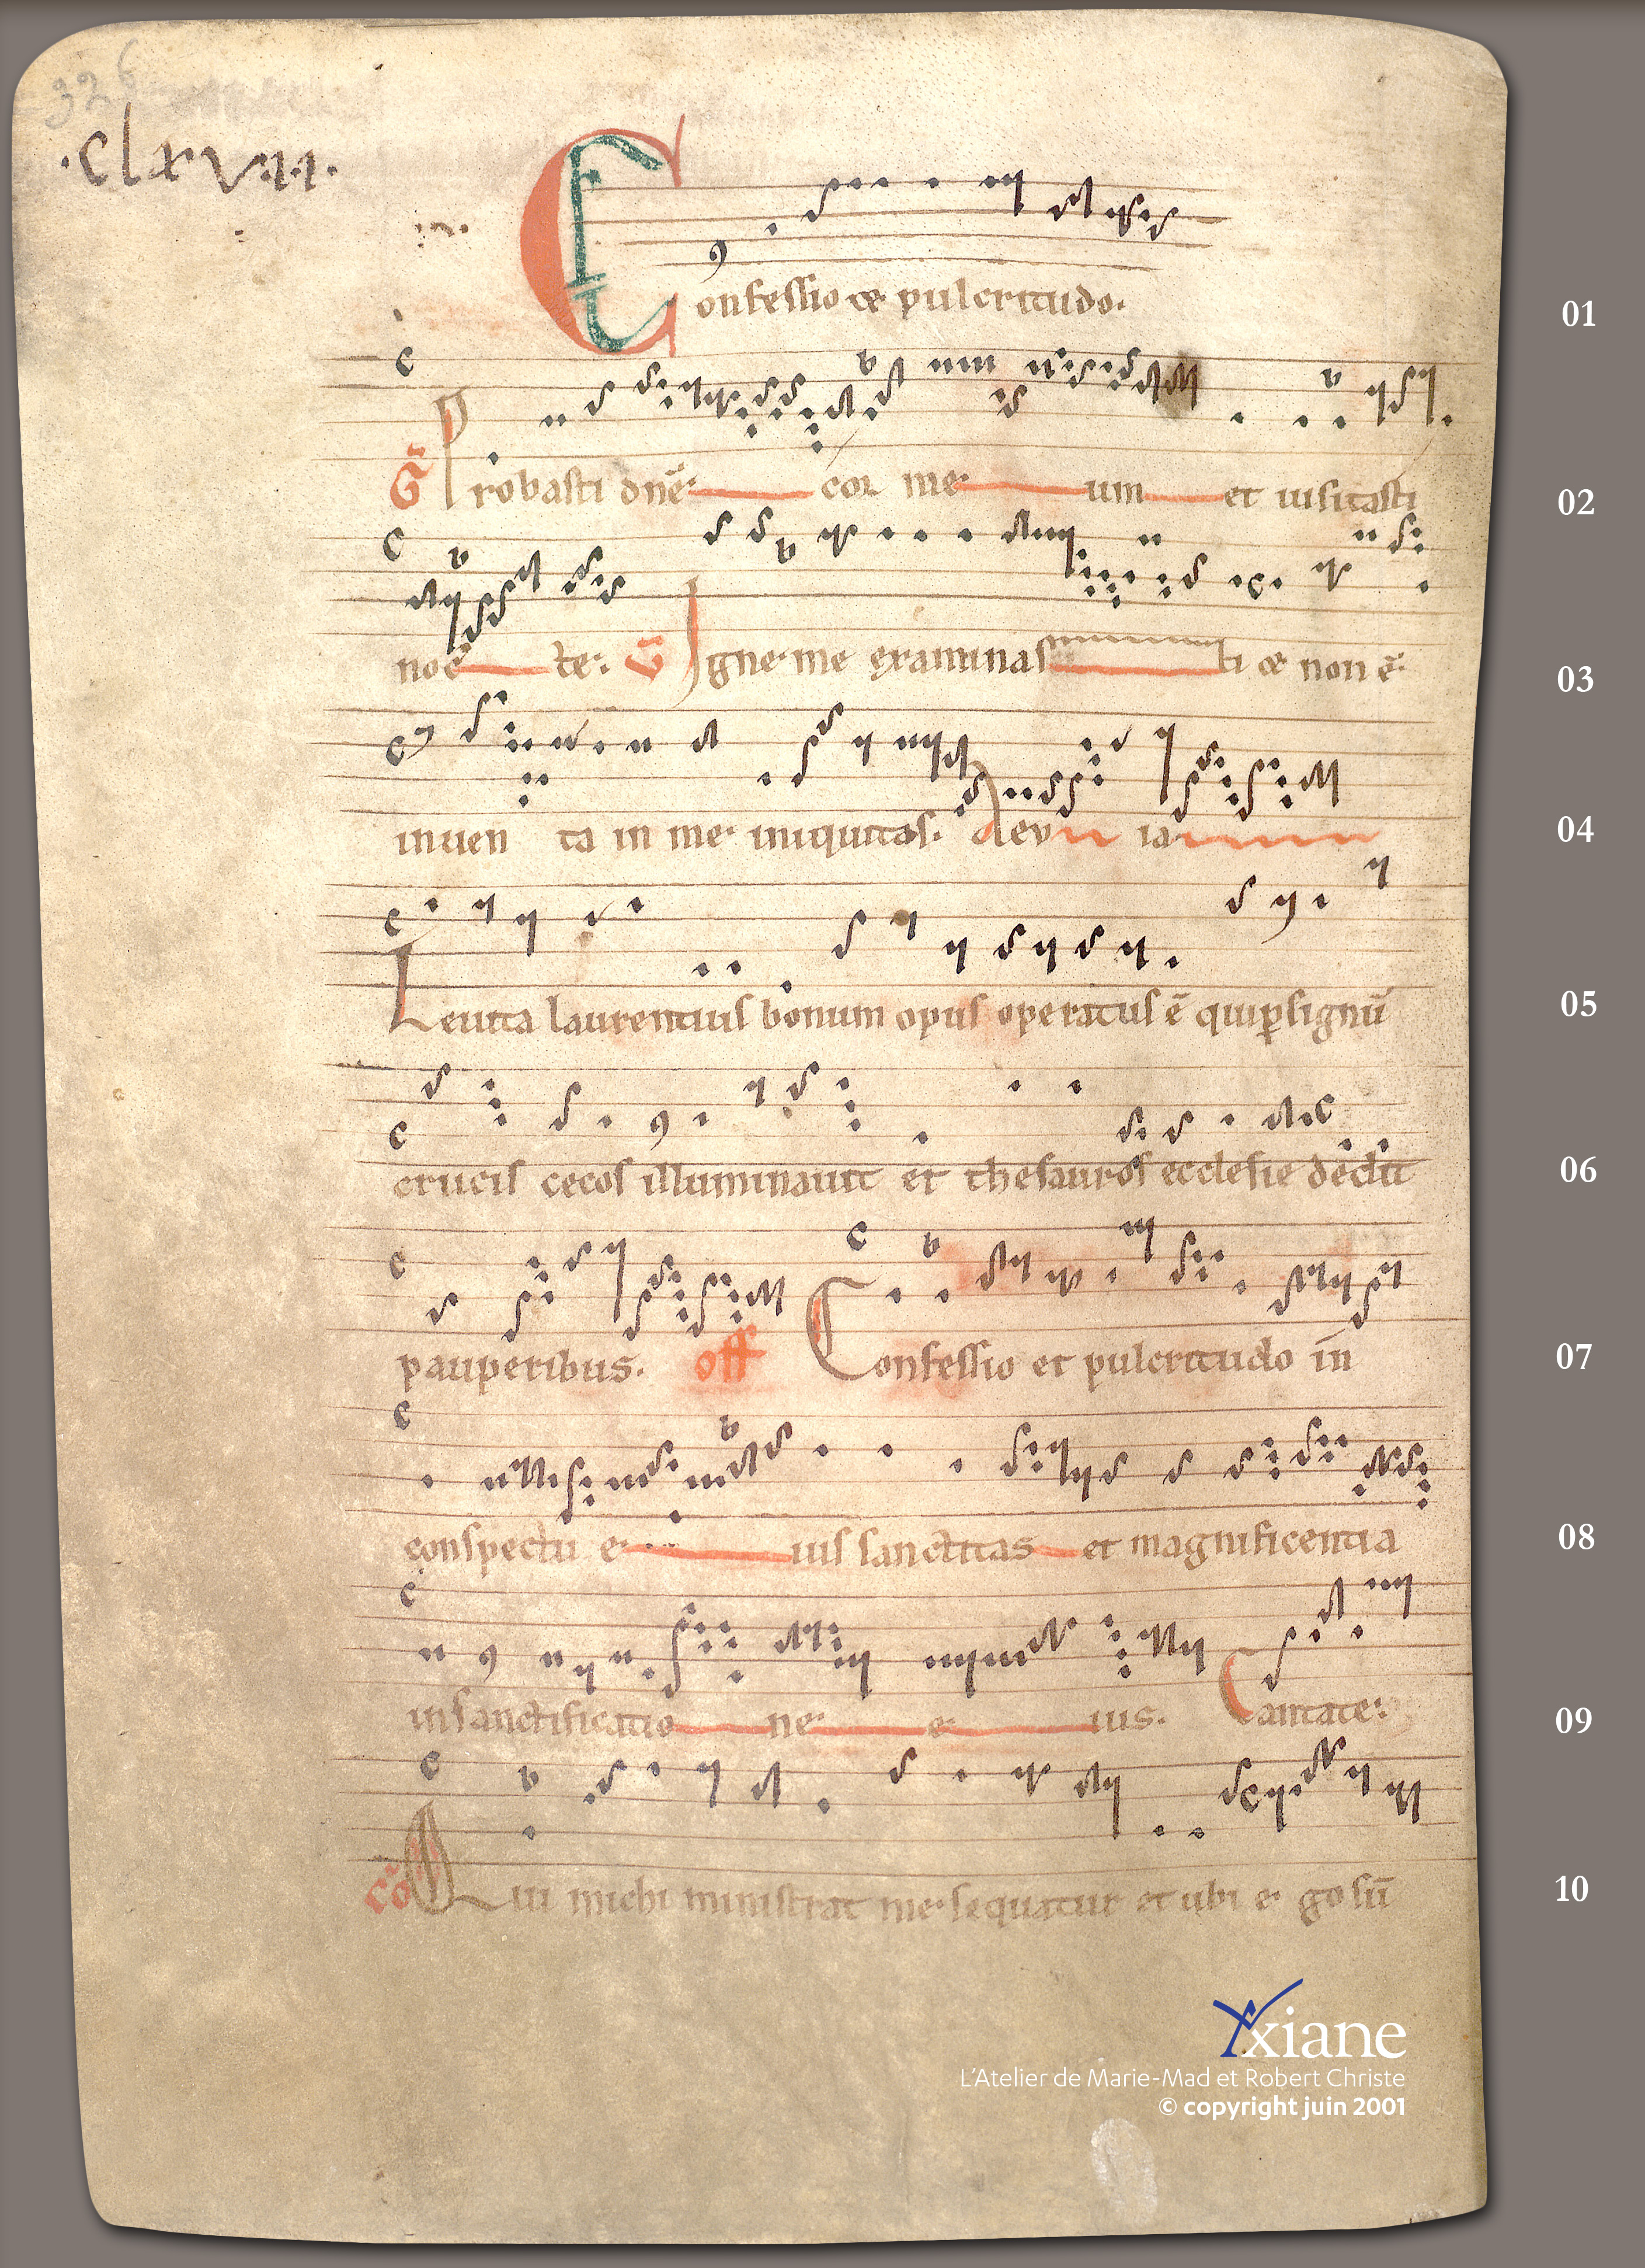 326
·clxvıı·
Confessio et pulcritudo. 01
G̃ Probasti dn̄e cor me um et uisitasti 02
nocte. V̄ Igne me examinasti et non ē 03
inuen ta in me iniquitas. Aeu ia 04
Leuita laurentius bonum opus operatus ē qui ꝑ signū 05
crucis cecos illuminauit et thesauros ecclesie dedit 06
pauperibus. off Confessio et pulcritudo in̄ 07
conspectu e ius sanctitas et magnificentia 08
in sanctificatio ne e ius. Cantate. 09
cō Qui michi ministrat me sequatur et ubi e go sū 10
Yxiane
L'Atelier de Marie-Mad et Robert Christe
© copyright juin 2001